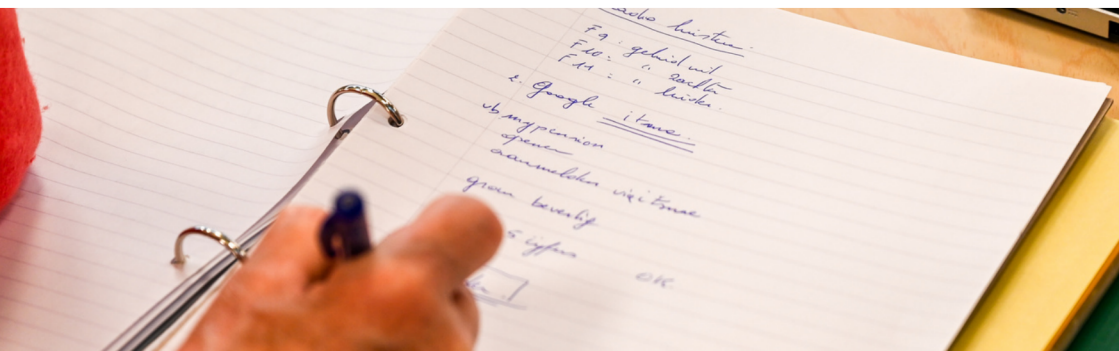 radio luisteren
F9: geluid uit
F10: " zachter
F11: " luider.
2. Google itsme.
vb mypension
openen
aanmelden via itsme
groen bevestig
5 cijfers OK